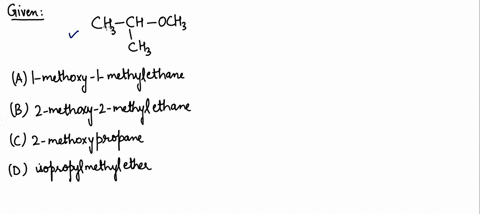 Given:
✓ CH₃-CH-OCH₃
CH₃
(A) 1-methoxy-1-methylethane
(B) 2-methoxy-2-methylethane
(C) 2-methoxypropane
(D) isopropylmethylether